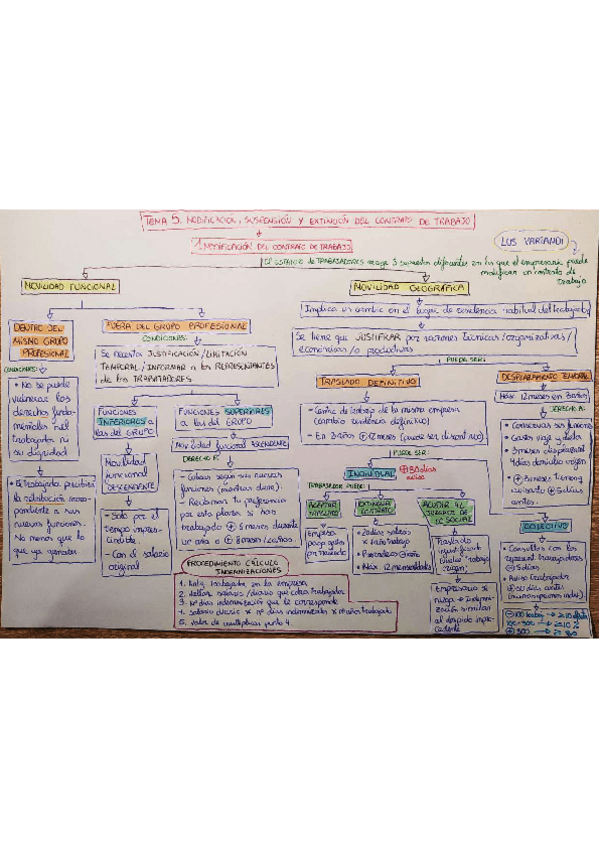 TEMA 5. MODIFICACIÓN, SUSPENSIÓN Y EXTINCIÓN DEL CONTRATO DE TRABAJO
1. MODIFICACIÓN DEL CONTRATO DE TRABAJO
IUS VARIANDI
El ESTATUTO de TRABAJADORES recoge 3 supuestos diferentes en los que el empresario puede
modificar un contrato de
trabajo
MOVILIDAD FUNCIONAL
DENTRO DEL
MISMO GRUPO
PROFESIONAL
CONDICIONES:
• No se puede
vulnerar los
derechos funda-
mentales del
trabajador ni
su dignidad
• El trabajador percibirá
la retribución corres-
pondiente a sus
nuevas funciones.
No menos que lo
que ya ganaba
FUERA DEL GRUPO PROFESIONAL
CONDICIONES:
Se necesita JUSTIFICACIÓN / LIMITACIÓN
TEMPORAL / INFORMAR a los REPRESENTANTES
de los TRABAJADORES
FUNCIONES
INFERIORES a
las del GRUPO
Movilidad
funcional
DESCENDENTE
- Solo por el
tiempo impres-
cindible.
- Con el salario
original
FUNCIONES SUPERIORES
a las del GRUPO
Movilidad funcional ASCENDENTE
DERECHO A:
- Cobrar según sus nuevas
funciones (mientras dure).
- Reclamar tu preferencia
por esta plaza si has
trabajado ⊕ 6 meses durante
un año o ⊕ 8 meses 2 años.
PROCEDIMIENTO CÁLCULO
INDEMNIZACIONES
1. trabajador en la empresa
2. salario/diario que cobra trabajador
3. Nº días indemnización que le corresponde
4. salario diario × nº días indemnizados × nº años trabajado
5. valor de multiplicar punto 4.
MOVILIDAD GEOGRÁFICA
Implica un cambio en el lugar de residencia habitual del trabajador
Se tiene que JUSTIFICAR por razones técnicas/organizativas/
económicas/o productivas
PUEDE SER:
TRASLADO DEFINITIVO
- Centro de trabajo de la misma empresa
(cambio residencia definitivo)
- En 3 años ⊕ 12 meses (puede ser discontinuo)
PUEDE SER:
INDIVIDUAL
⊕ 30 días
TRABAJADOR PUEDE:
ACEPTAR
TRASLADO
Empresa
paga gastos
por traslado
EXTINGUIR
CONTRATO
• 20 días salario
× año trabajo
• Prorrateado ⊖ año
• Máx 12 mensualidades
ACUDIR AL
JUZGADO DE
LO SOCIAL
Traslado
injustificado
"vuelve" trabajo
origen
Empresario se
niega → Indemni-
zación similar
al despido impro-
cedente
DESPLAZAMIENTO TEMPORAL
Máx 12 meses en 3 años
DERECHO A:
• Conservar sus funciones
• Gastos viaje y dieta
• 3 meses desplazamiento
4 días domicilio origen
• ⊕ 3 meses tiempo
preaviso ⊕ 5 días
antes.
COLECTIVO
• Consultas con los
represent. trabajadores
⊖ 15 días
• Aviso trabajador
⊕ 30 días antes
⊖ 100 trabaj → ⊕ 10 afect
100 - 300 → ⊕ 10 %
⊕ 300 → 30